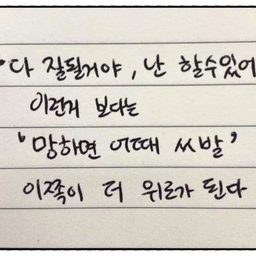 '다 잘될거야, 난 할수있어
이런거 보다는
'망하면 어때 씨발'
이쪽이 더 위로가 된다